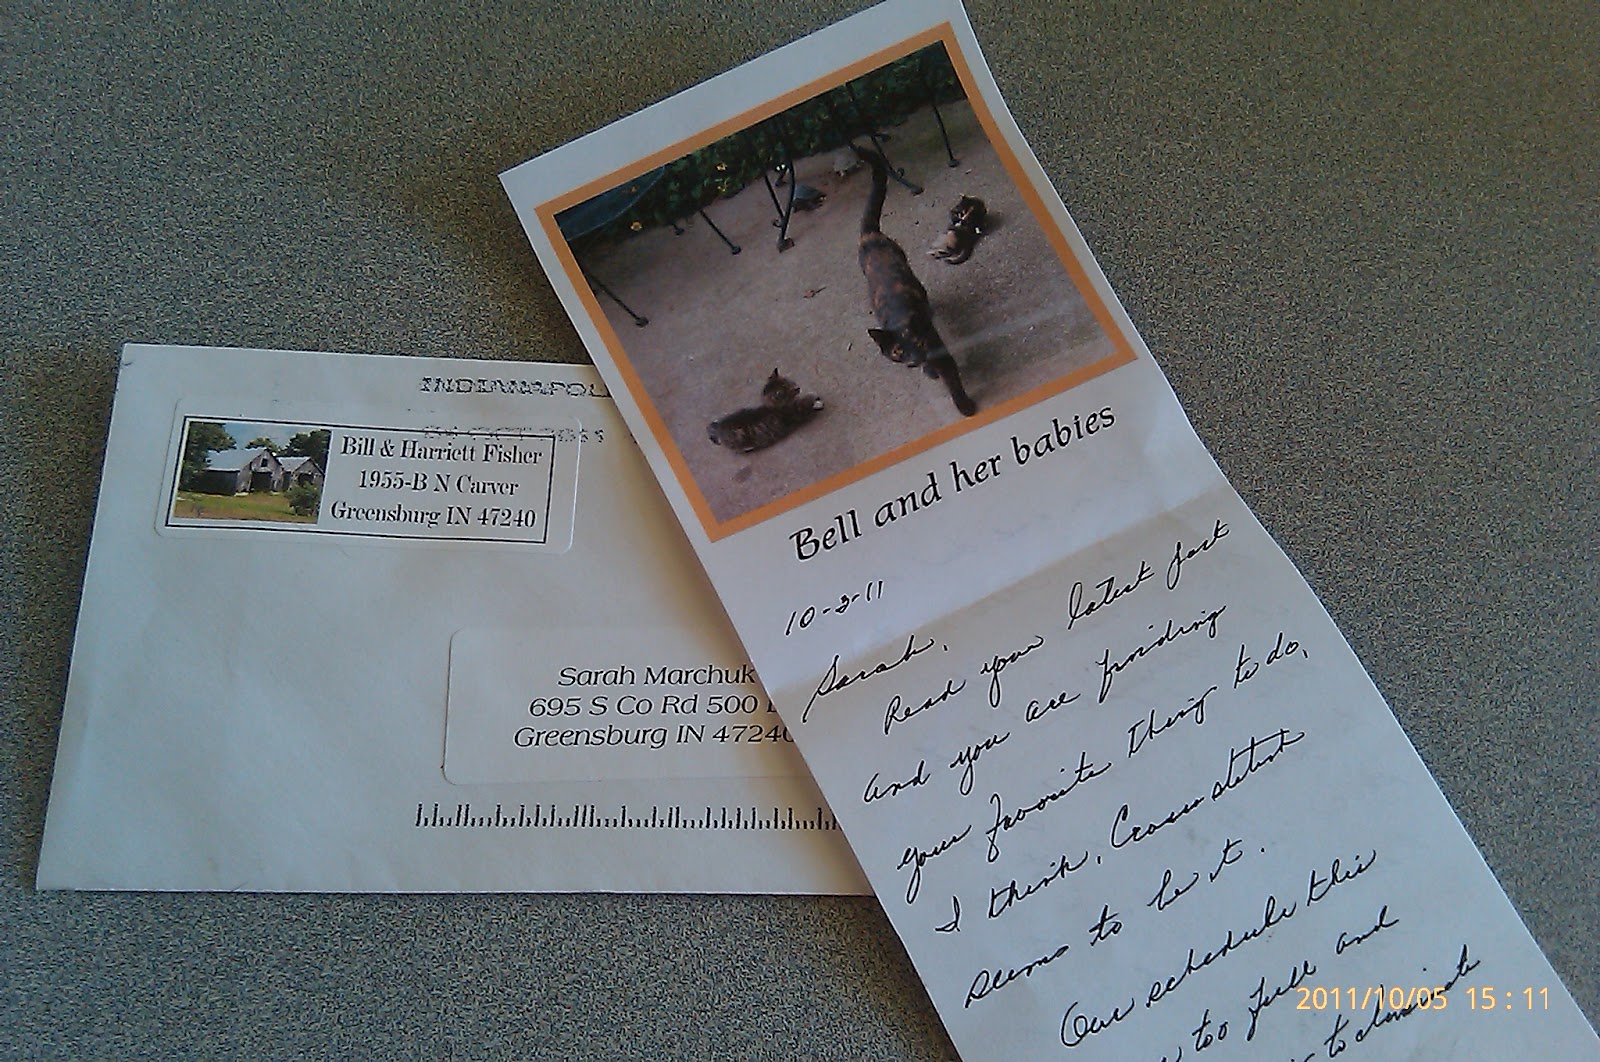 INDIANAPOL
Bill & Harriett Fisher
1955-B N Carver
Greensburg IN 47240
Sarah Marchuk
695 S Co Rd 500
Greensburg IN 47240
Bell and her babies
10-3-11
Sarah,
Read your latest post
and you are finding
your favorite thing to do,
I think. Cross stitch
seems to be it.
Our schedule this
too full and
to eliminate
2011/10/05 15:11